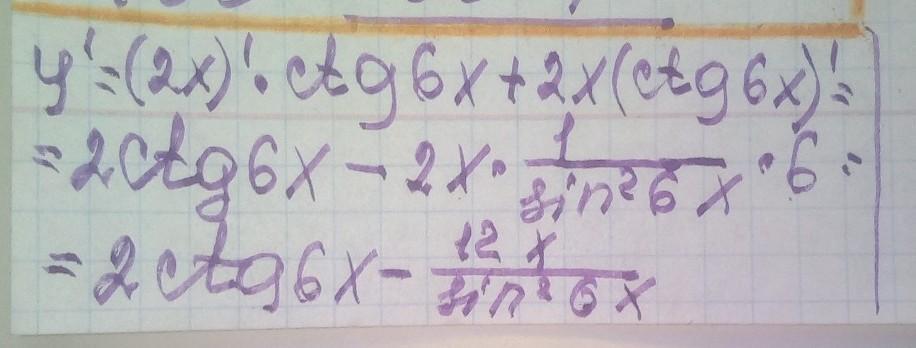 y' = (2x)' · ctg 6x + 2x (ctg 6x)' =
= 2 ctg 6x - 2x · 1/sin² 6x · 6 =
= 2 ctg 6x - 12x/sin² 6x